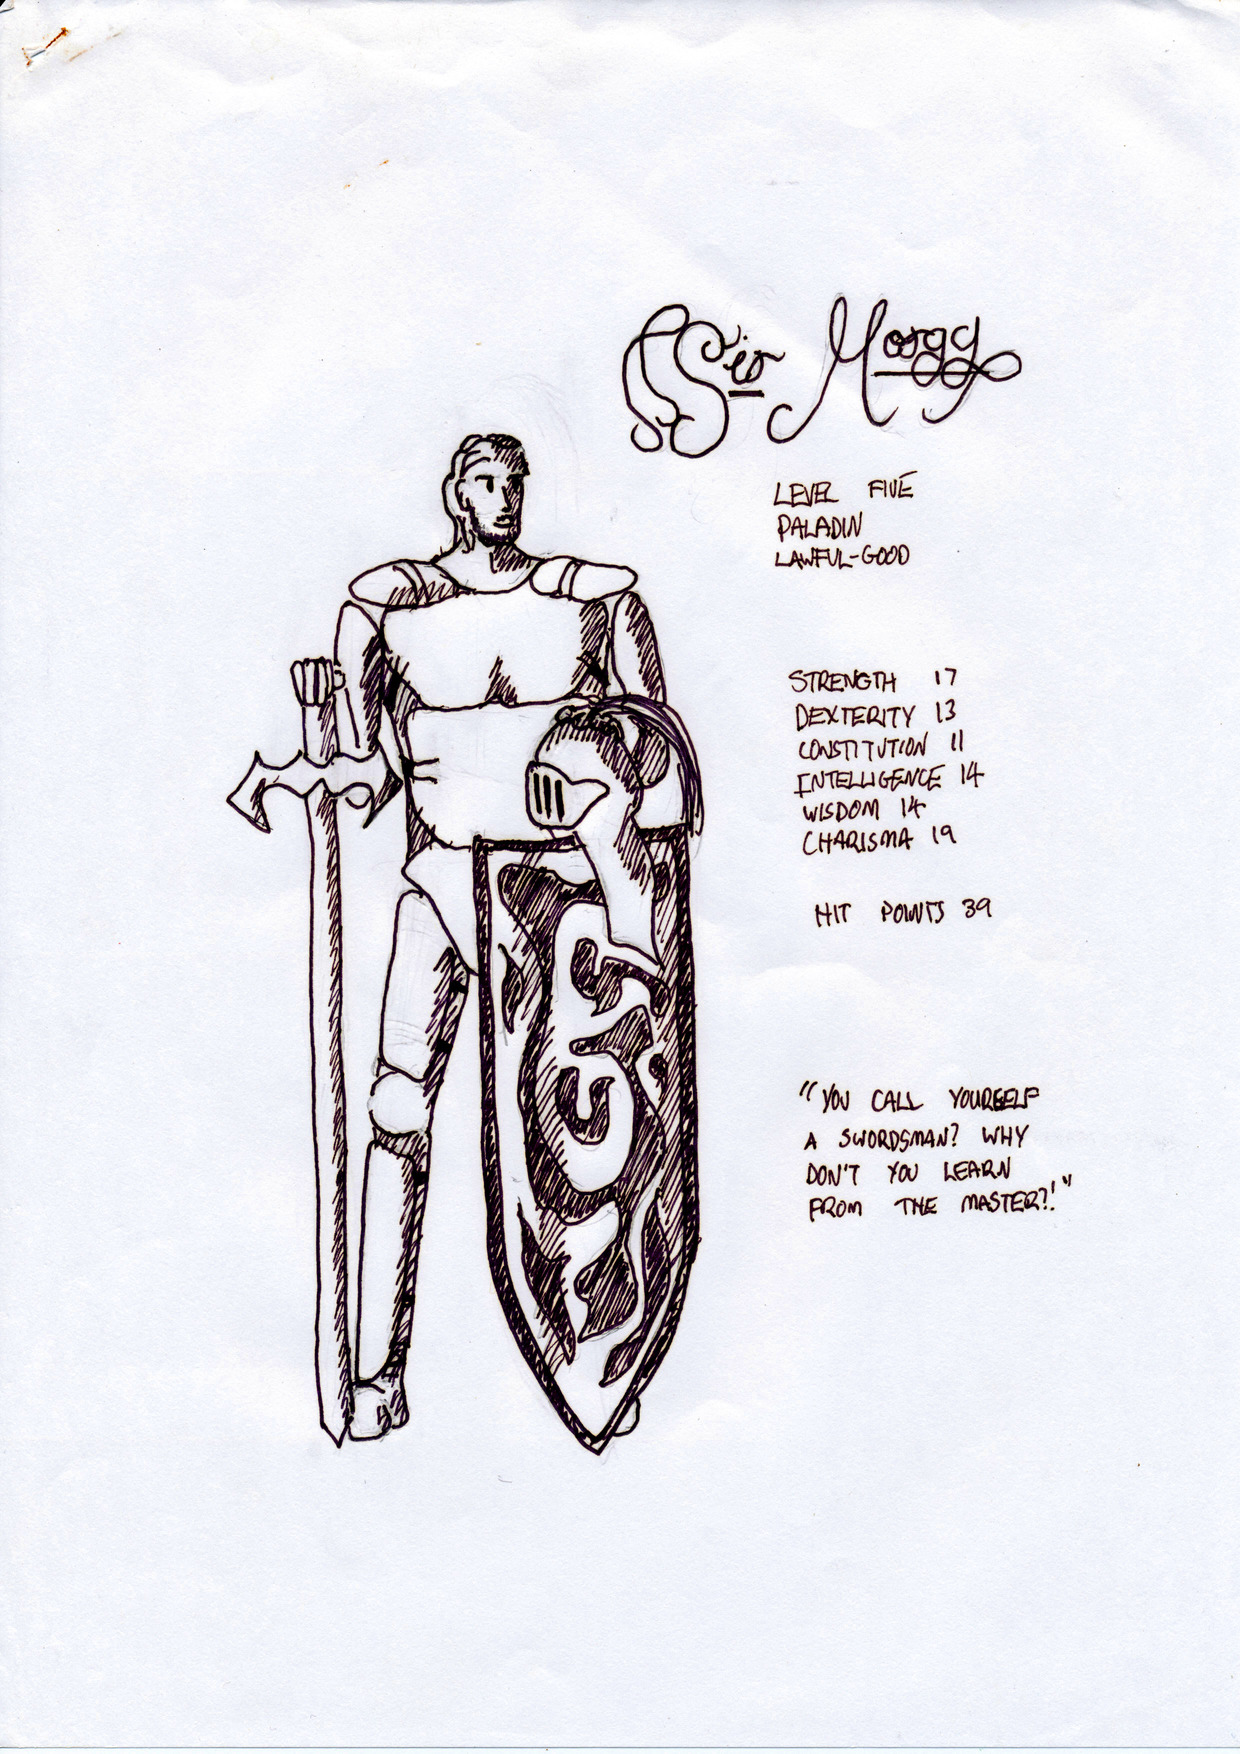 Sir Morgg
LEVEL FIVE
PALADIN
LAWFUL-GOOD
STRENGTH 17
DEXTERITY 13
CONSTITUTION 11
INTELLIGENCE 14
WISDOM 14
CHARISMA 19
HIT POINTS 39
"YOU CALL YOURSELF
A SWORDSMAN? WHY
DON'T YOU LEARN
FROM THE MASTER?!"